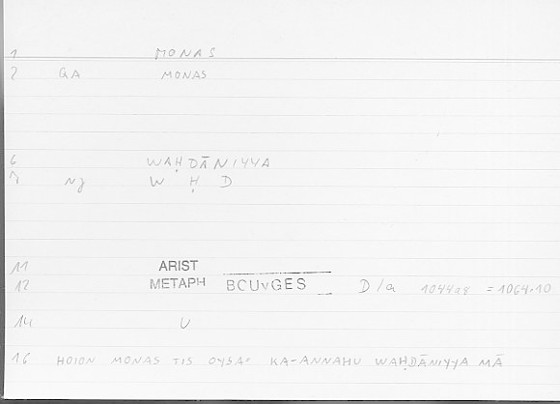 1 MONAS
2 QA MONAS
6 WAḤDĀNIYYA
7 Nj W Ḥ D
11 ARIST
12 METAPH BCUvGES D/a 1044a8 = 1064.10
14 U
16 HOION MONAS TIS OYSA KA-ANNAHU WAḤDĀNIYYA MĀ